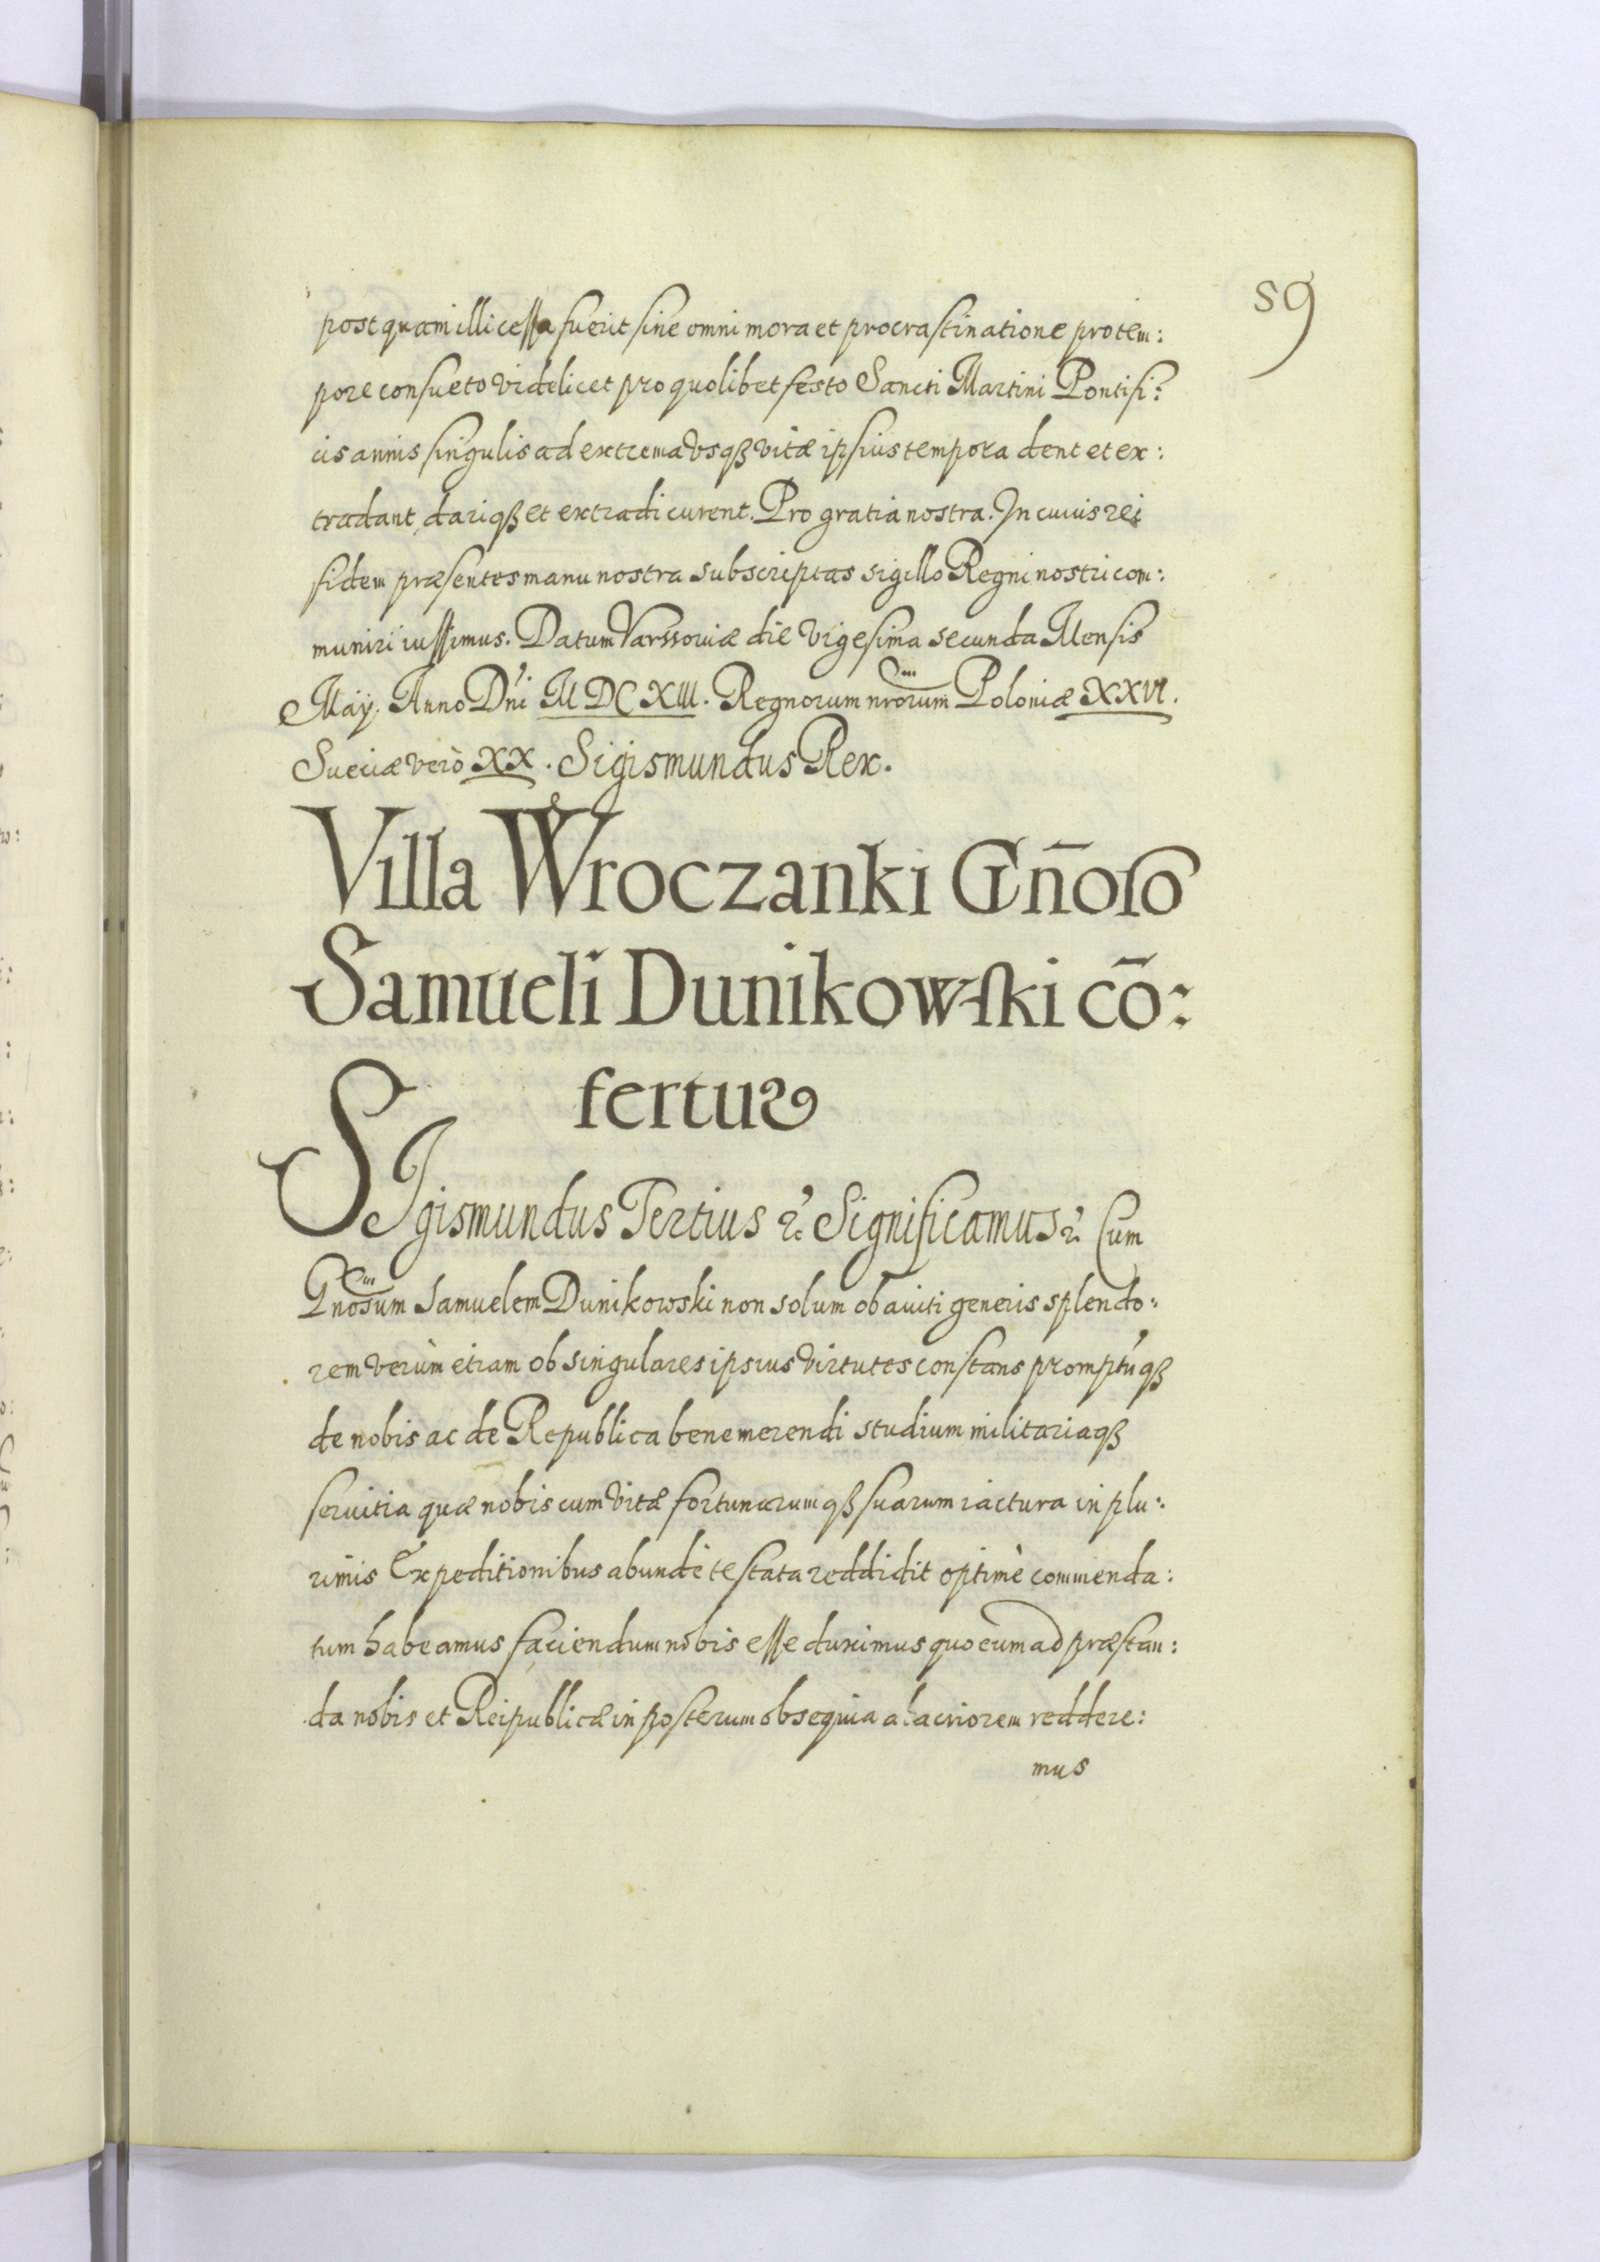 59
postquam illi cessa fuerit sine omni mora et procrastinatione pro tem:
pore consueto videlicet pro quolibet festo Sancti Martini Pontifi:
cis annis singulis ad extrema vsqꝫ vitæ ipsius tempora dent et ex:
tradant, dariqꝫ et extradi curent. Pro gratia nostra. In cuius rei
fidem præsentes manu nostra subscriptas sigillo Regni nostri com:
muniri iussimus. Datum Varssoviæ die vigesima secunda Mensis
Maÿ. Anno Dn̄i MDCXIII. Regnorum nrorum Poloniæ XXVI.
Sueciæ verò XX. Sigismundus Rex.
Villa Wroczanki Gn̄oso
Samueli Dunikowski cō:
fertur
SIgismundus Tertius ꝛc̃ Significamus ꝛ. Cum
Gnosum Samuelem Dunikowski non solum ob aviti generis splendo:
rem verùm etiam ob singulares ipsius virtutes constans promptu'qꝫ
de nobis ac de Republica bene merendi studium militariaqꝫ
servitia quæ nobis cum vitæ fortunarumqꝫ suarum iactura in plu:
rimis Expeditionibus abundè testata reddidit optimè commenda:
tum habeamus faciendum nobis esse duximus quo eum ad præstan:
da nobis et Reipublicæ in posterum obsequia alacriorem reddere:
mus